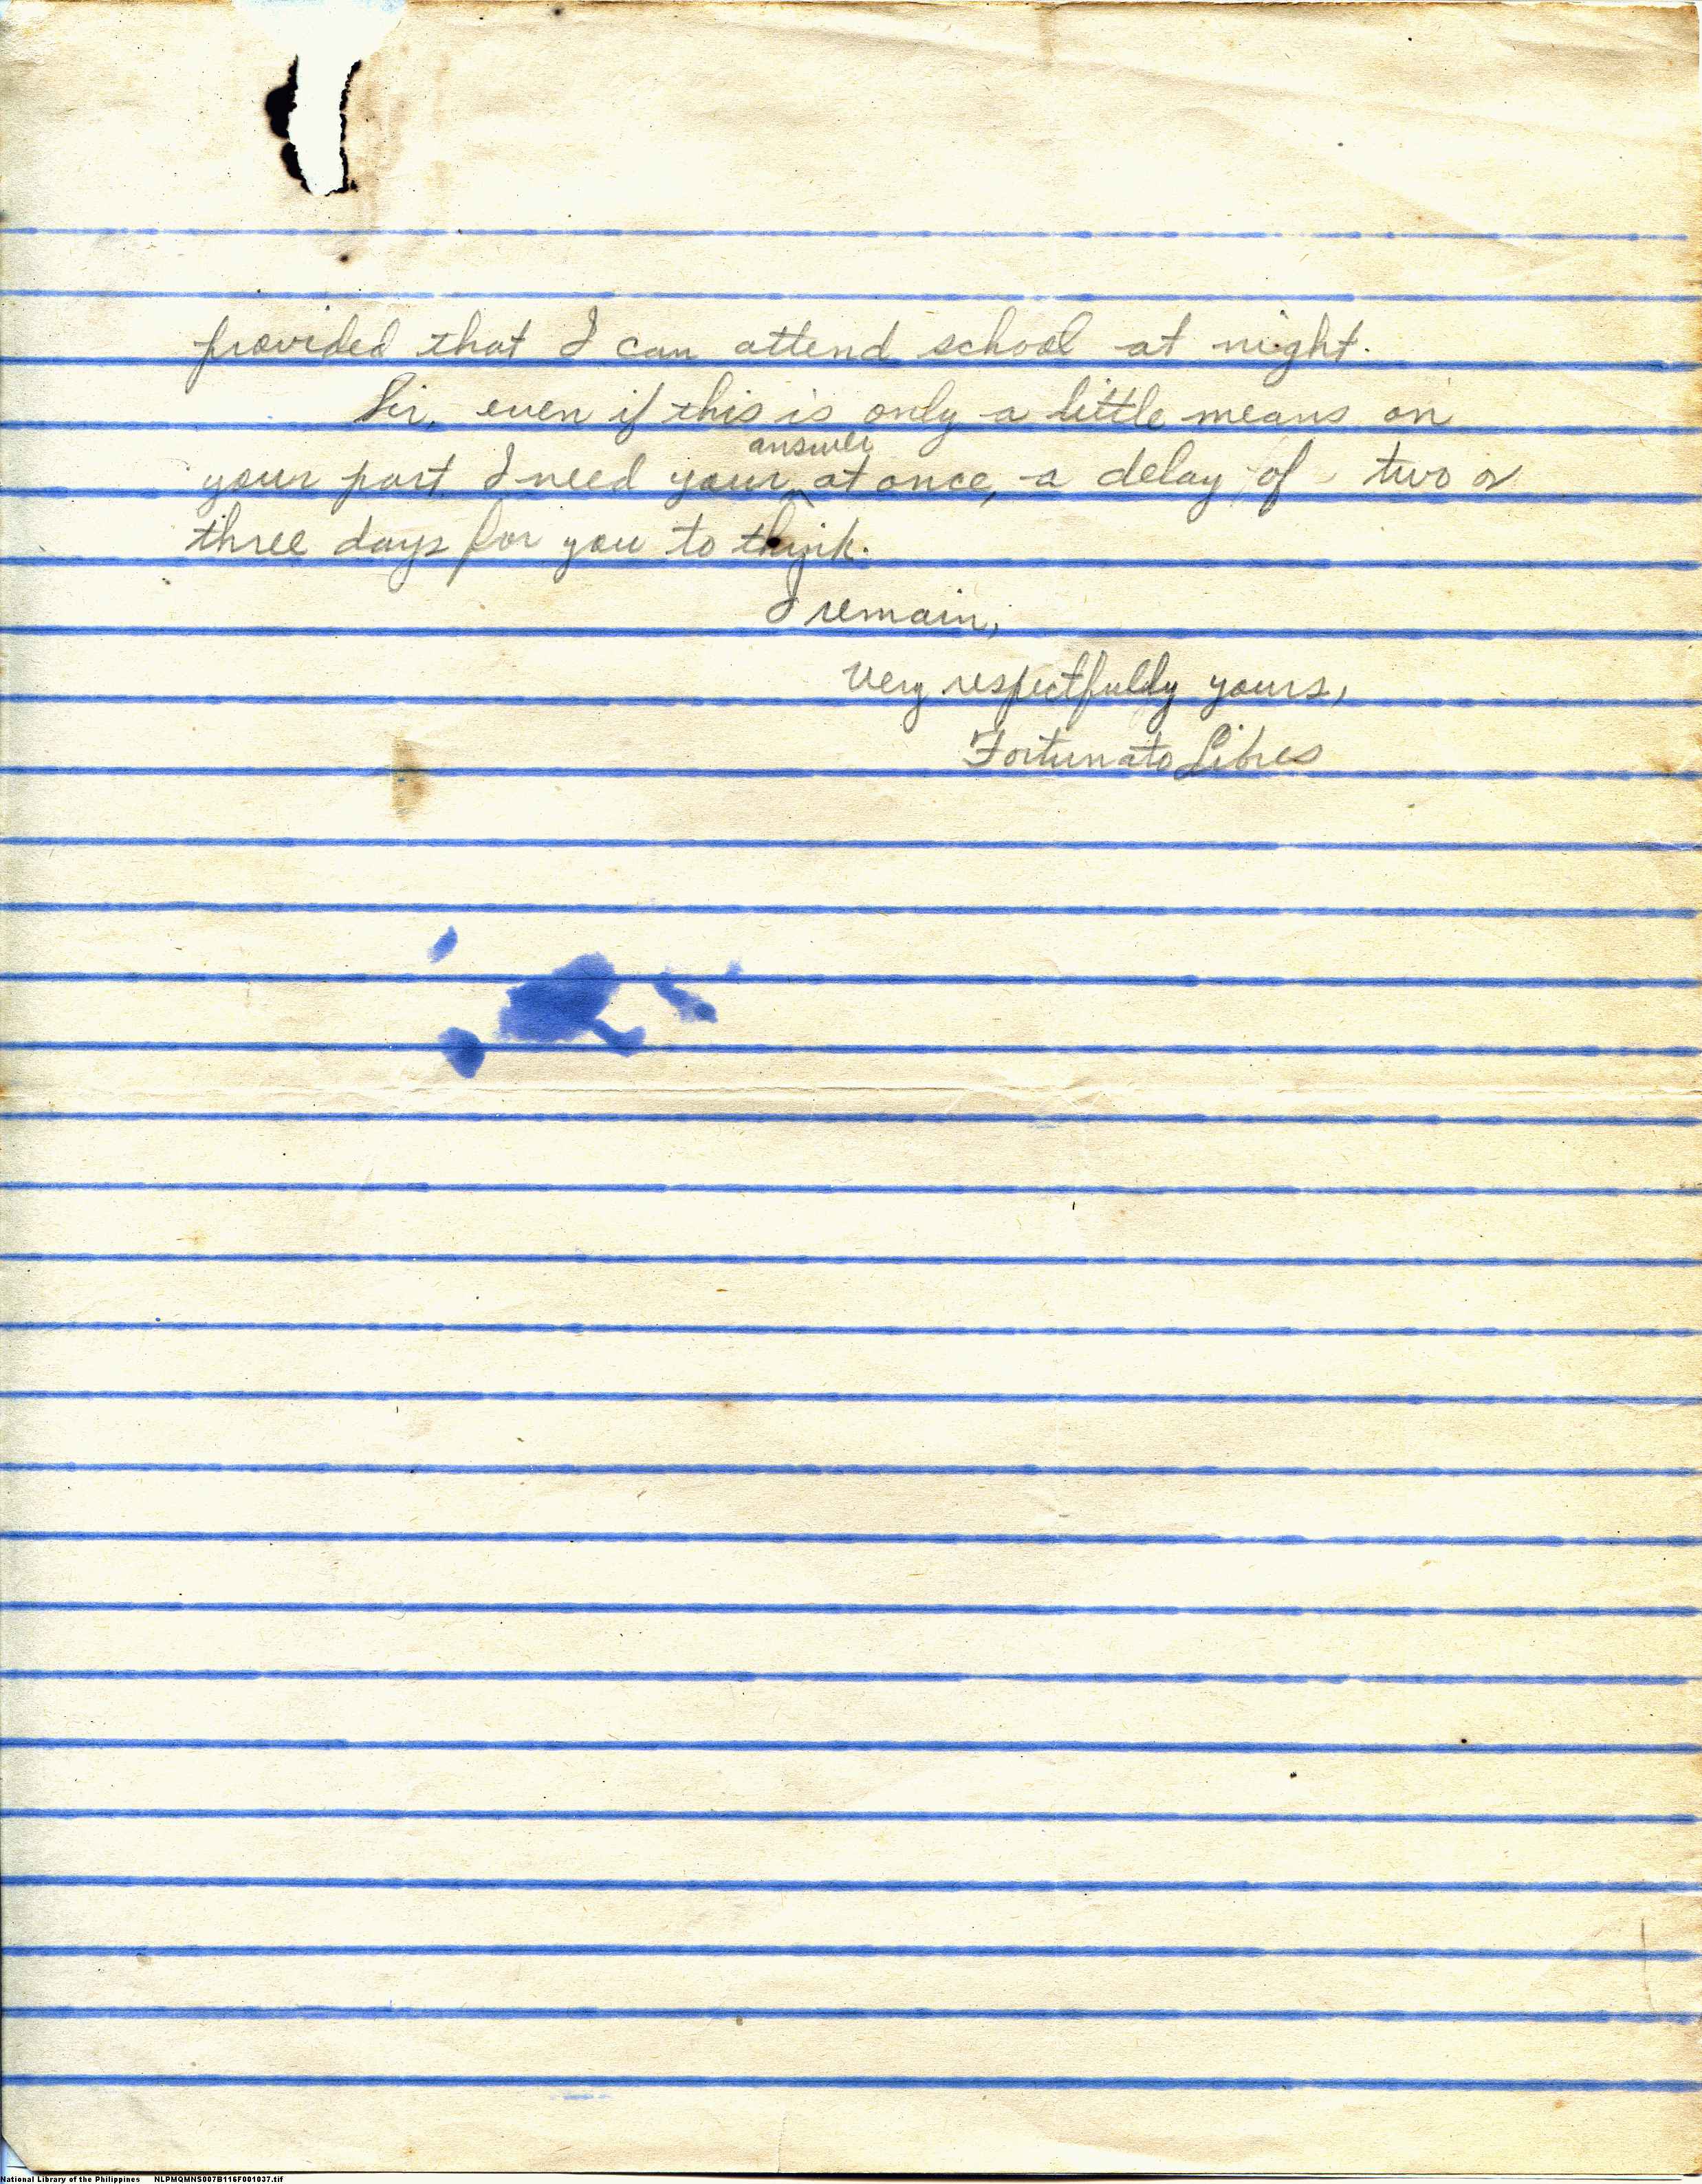 provided that I can attend school at night.
Sir, even if this is only a little means on
your part I need your answer at once, a delay of two or
three days for you to think.
I remain,
Very respectfully yours,
Fortunato Libres
National Library of the Philippines NLPMQMNS007B116F001037.tif